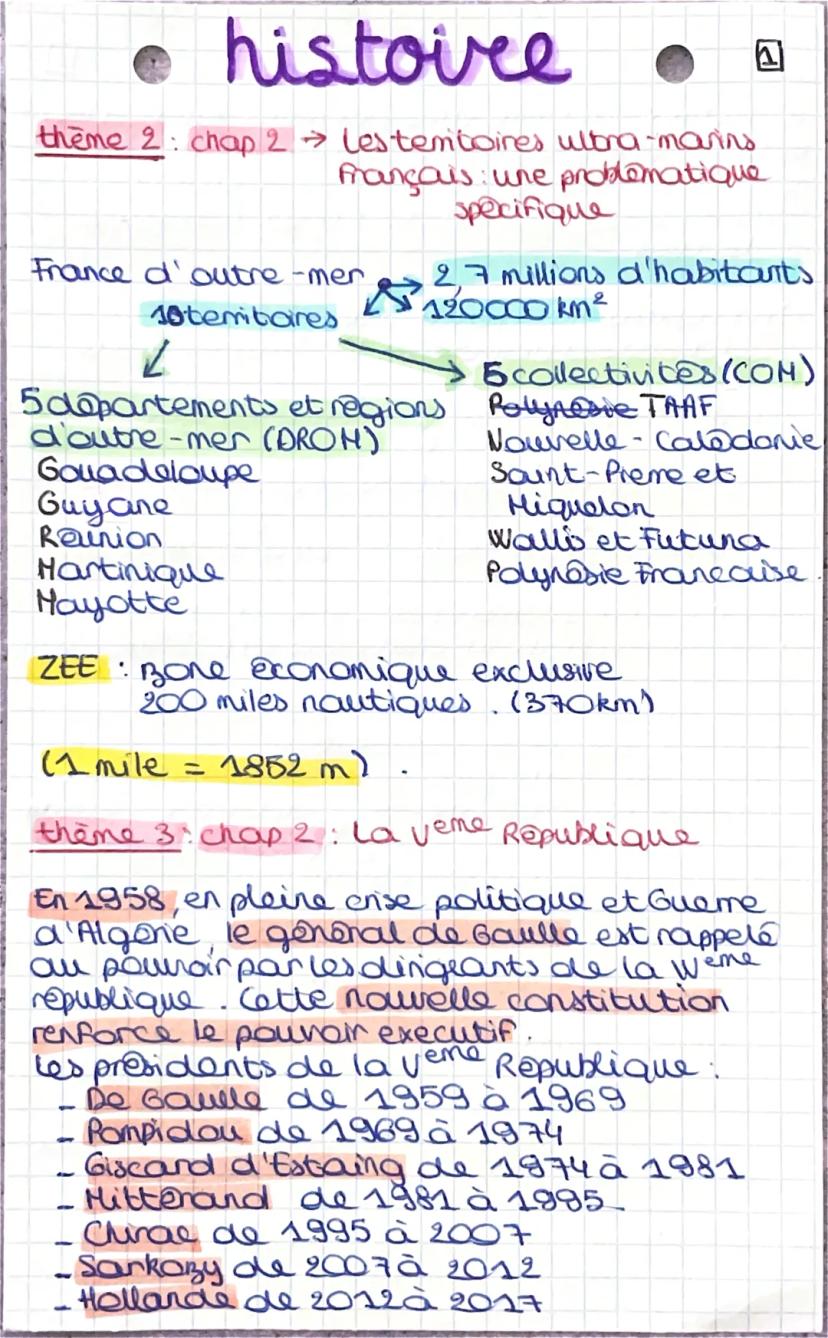 histoire
1
thème 2 : chap 2 → Les territoires ultra-marins
français : une problématique
spécifique
France d'outre-mer
2,7 millions d'habitants
120000 km²
10 territoires
5 départements et régions
d'outre-mer (DROM)
Gouadeloupe
Guyane
Réunion
Martinique
Mayotte
5 collectivités (COM)
Polynésie TAAF
Nouvelle-Calédonie
Saint-Pierre et
Miquelon
Wallis et Futuna
Polynésie Francaise.
ZEE : zone économique exclusive
200 miles nautiques. (370km)
(1 mile = 1852 m) .
thème 3 : chap 2 : La Veme République
En 1958, en pleine crise politique et Guerre
d'Algérie, le général de Gaulle est rappelé
au pouvoir par les dirigeants de la IVeme
république. Cette nouvelle constitution
renforce le pouvoir executif.
Les présidents de la Veme République :
- De Gaulle de 1959 à 1969
- Pompidou de 1969 à 1974
- Giscard d'Estaing de 1974 à 1981
- Mittérand de 1981 à 1995
- Chirac de 1995 à 2007
- Sarkozy de 2007 à 2012
- Hollande de 2012 à 2017